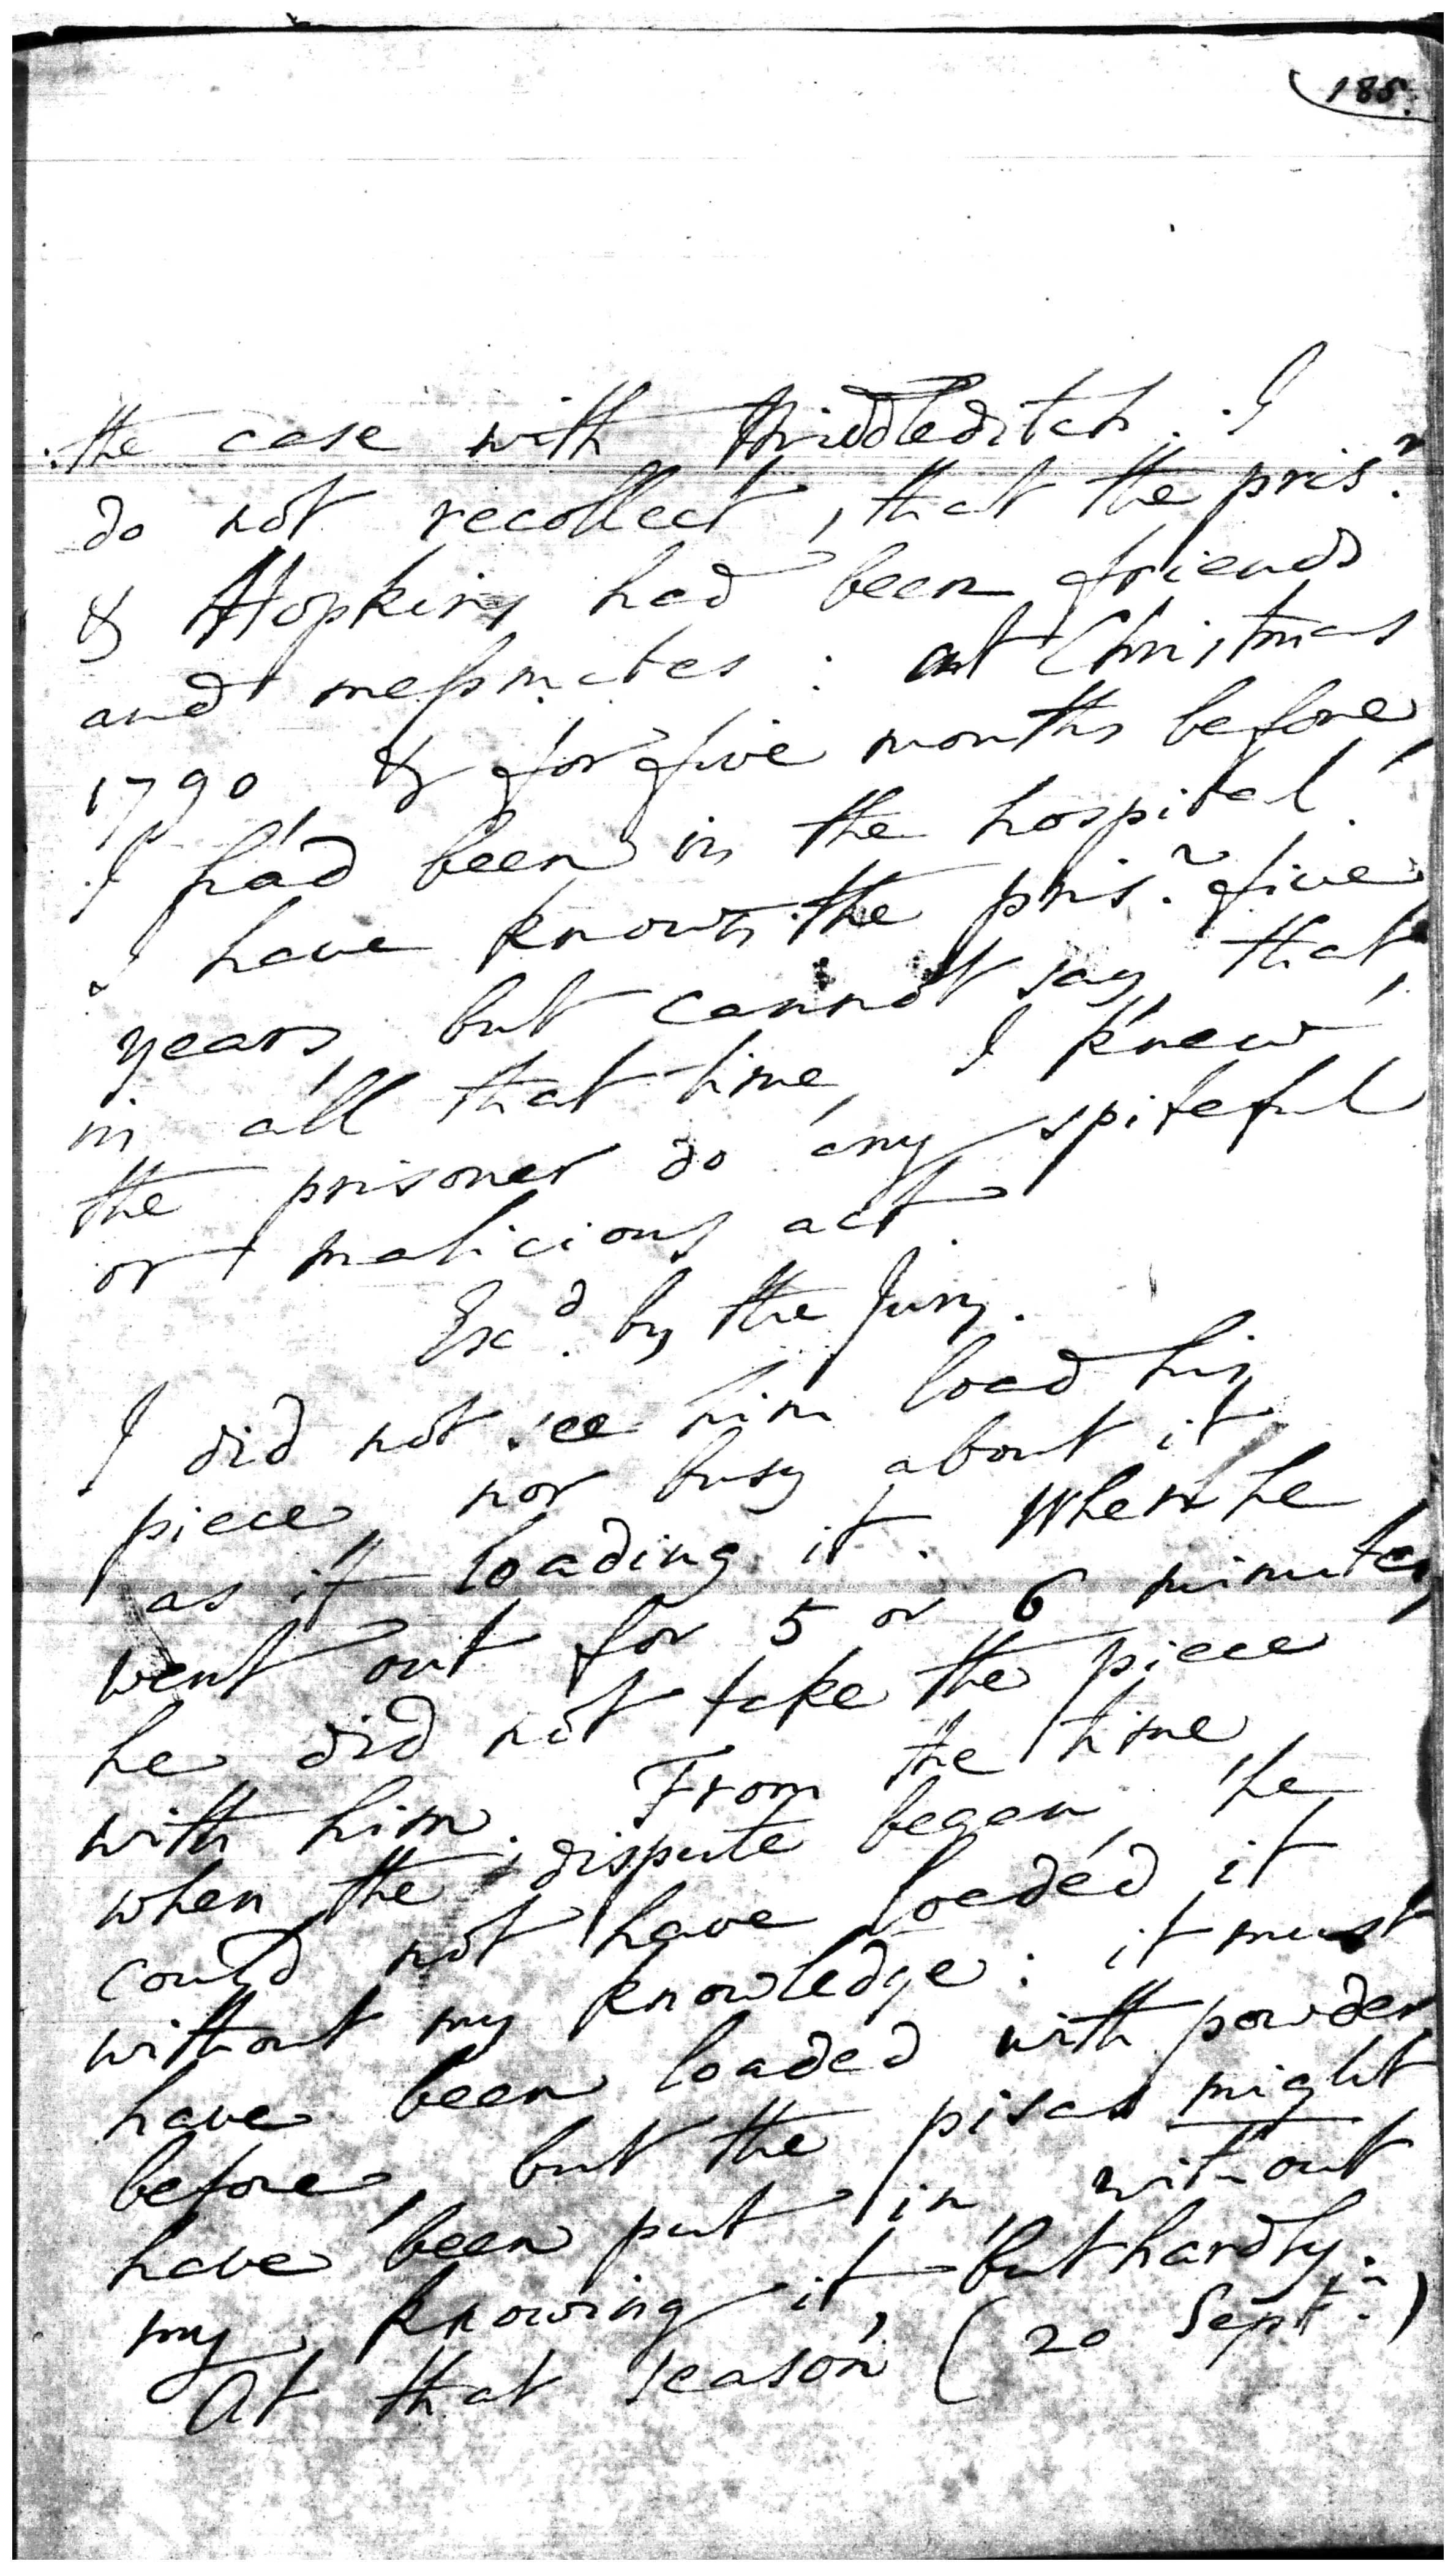 185.
the case with Middleditch. I
do not recollect, that the pris.r
& Hopkins had been friends
and meſsmates: at Christmas
1790, & for five months before,
I had been in the hospital.
I have known the pris.r five
years, but cannot say, that,
in all that time, I knew
the prisoner do any spiteful
or malicious act.
Ex.d by the Jury.
I did not see him load his
piece, nor busy about it
as if loading it. When he
went out for 5 or 6 minutes,
he did not take the piece
with him. From the time,
when the dispute began, he
could not have loaded it
without my knowledge: it must
have been loaded with powder
before, but the pisas might
have been put in, without
my knowing it, but hardly.
At that season (20 Sept.r)